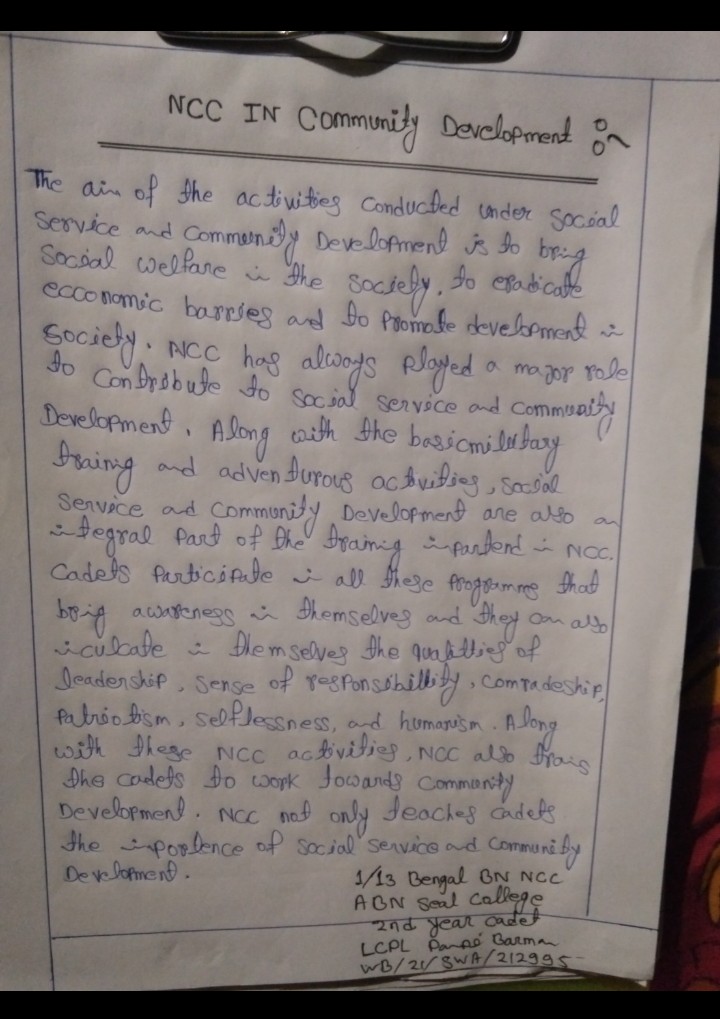 NCC IN Community Development :~
The aim of the activities conducted under social
service and community Development is to bring
social welfare in the society, to eradicate
ecconomic barries and to promote development in
society. NCC has always played a major role
to contribute to social service and community
Development. Along with the basicmilitary
training and adventurous activities, social
service and community Development are also an
integral part of the training impartend in NCC.
Cadets participate in all these programmes that
bring awareness in themselves and they can also
inculcate in themselves the qualities of
leadership, sense of responsibillity, comradeship,
patriotism, selflessness, and humanism. Along
with these NCC activities, NCC also trains
the cadets to work towards community
Development. NCC not only teaches cadets
the importence of social service and community
Development.
1/13 Bengal BN NCC
ABN Seal College
2nd year cadet
LCPL Barman
WB/21/SWA/212995